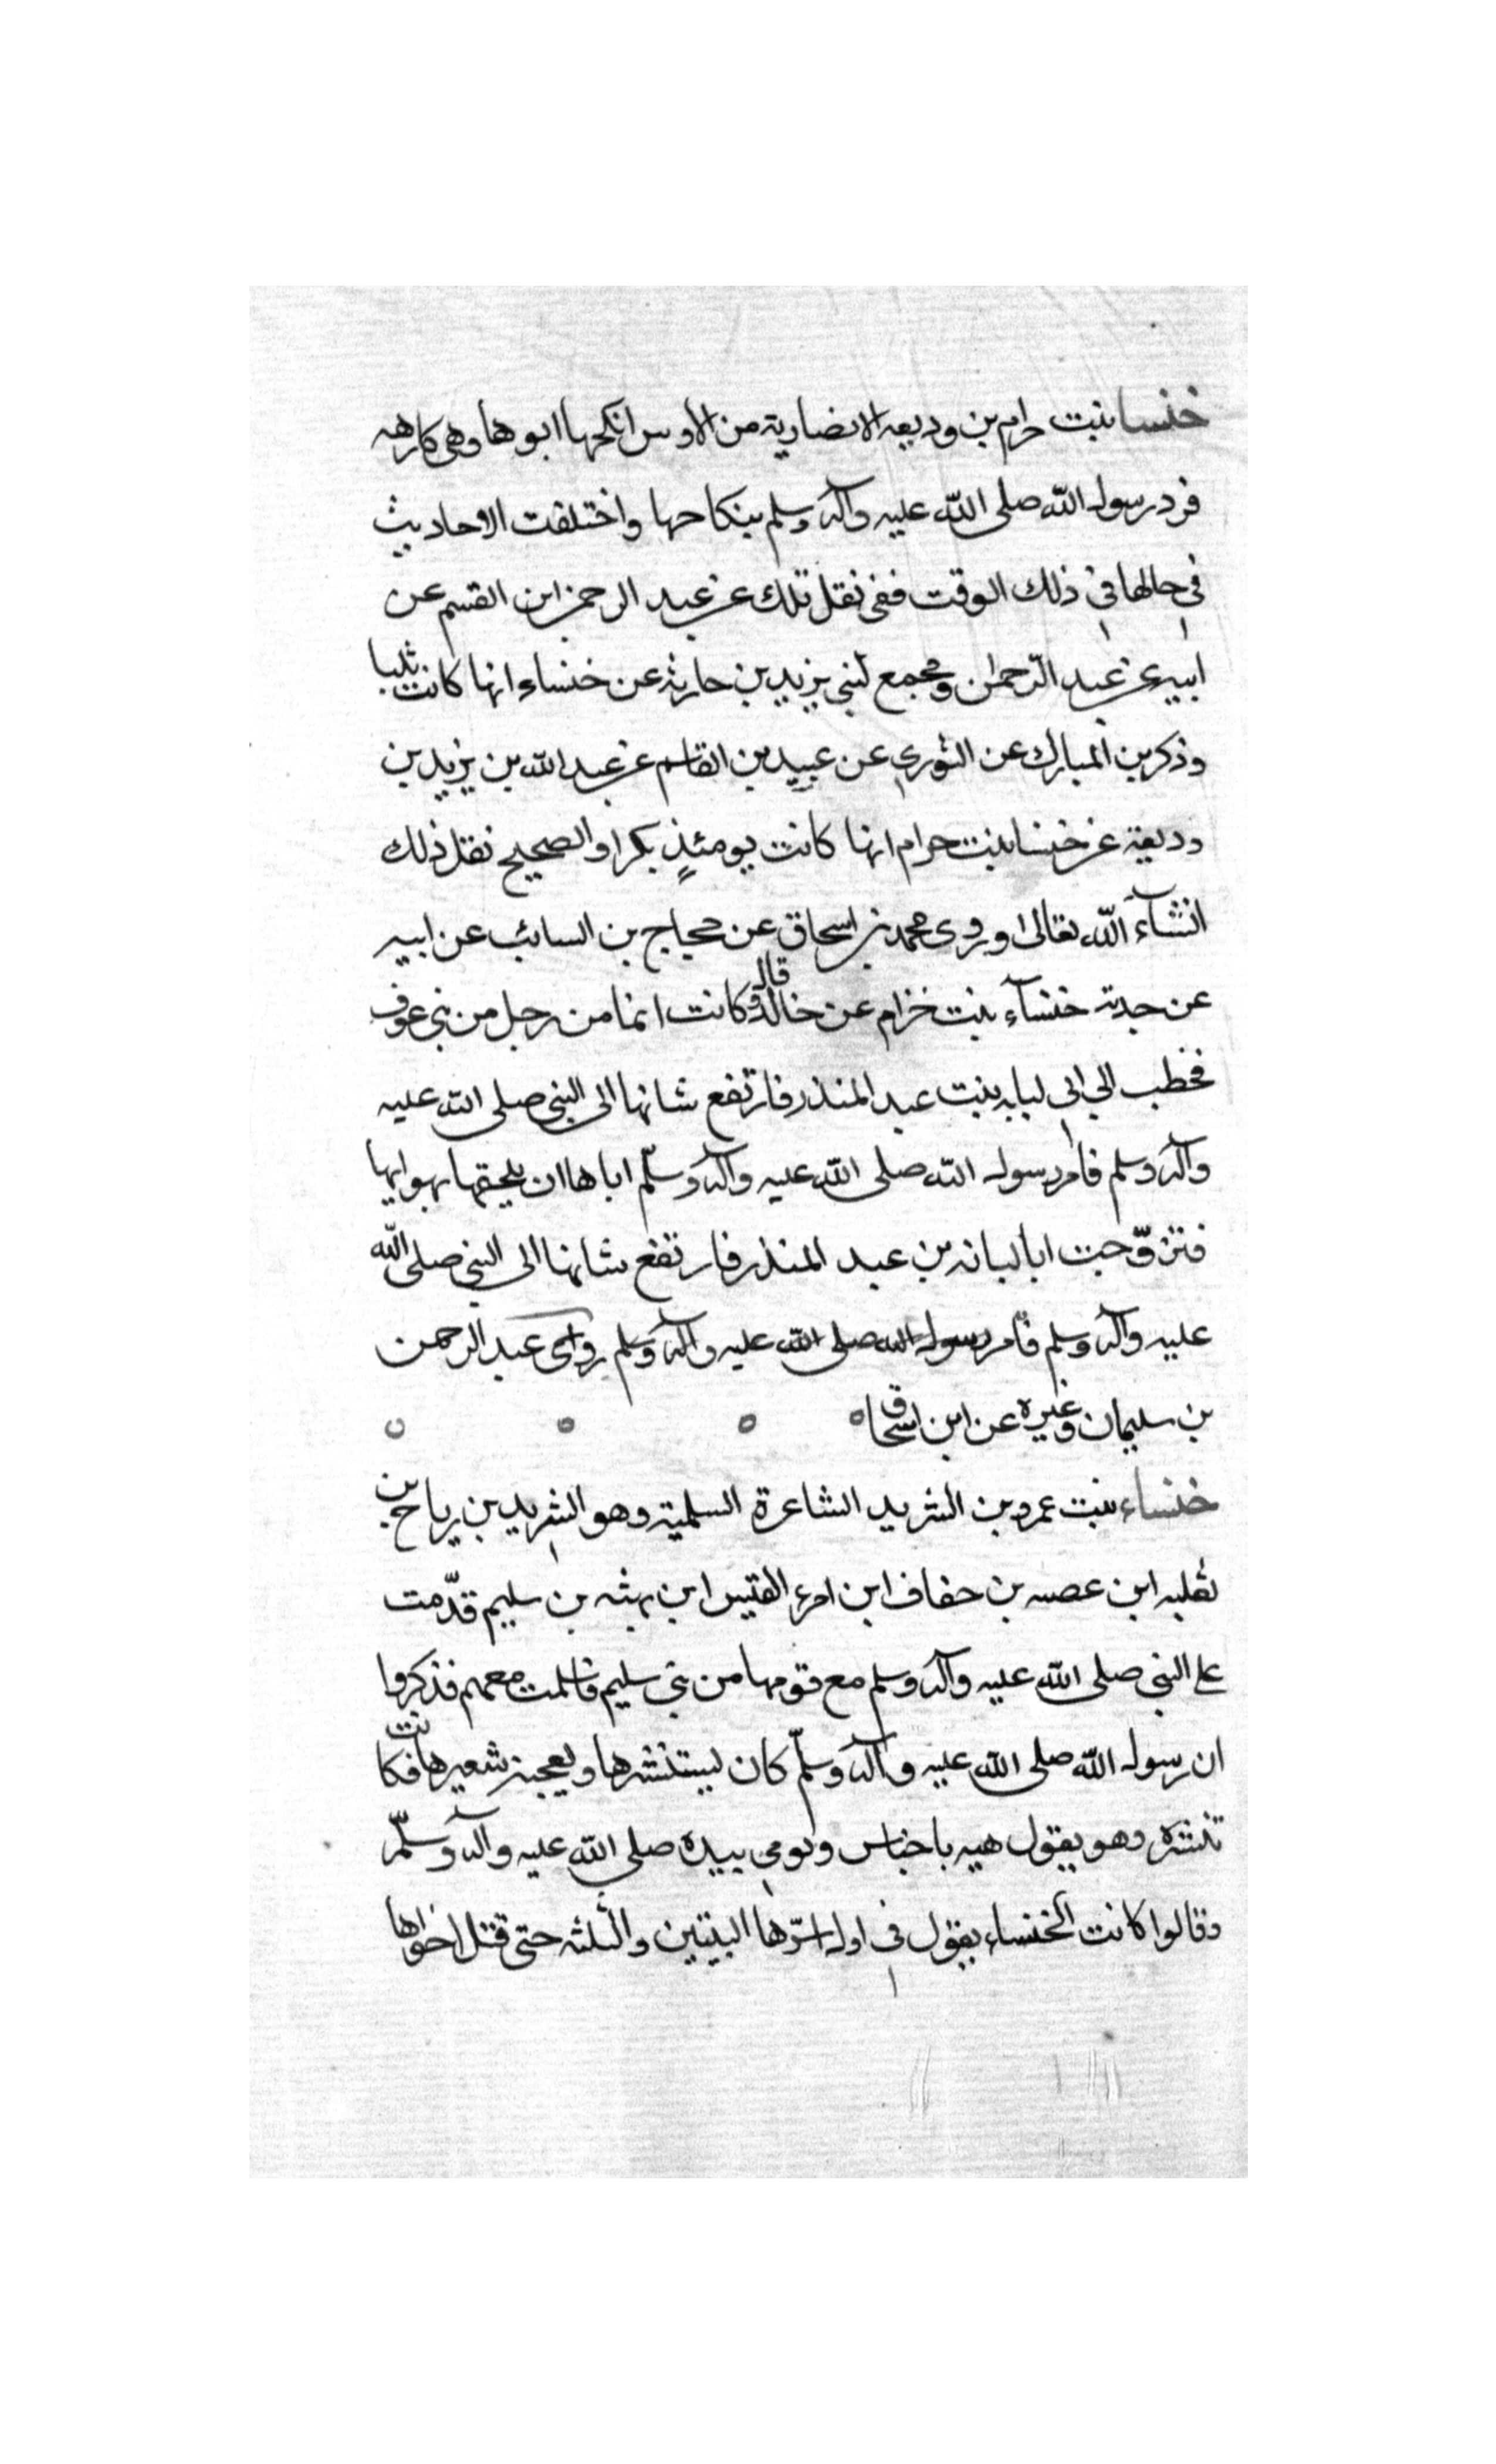 خنسا بنت حرام بن وديعه الانصارية من الاوس انكحها ابوها وهى كارهه
فرد رسول الله صلى الله عليه وآله وسلم بنكاحها واختلفت الاحاديث
في حالها في ذلك الوقت ففى نقل تلك عن عبد الرحمن ابن القسم عن
ابيه عن عبد الرحمان ومجمع لبنى يزيد بن حارثه عن خنساء انها كانت ثيبا
وذكر بن المبارك عن الثوري عن عبيد بن القاسم عن عبد الله بن يزيد بن
وديعة عن خنسا بنت حرام انها كانت يومئذٍ بكرا والصحيح نقل ذلك
انشآء الله تعالى وروى محمد بن اسحاق عن حجاج بن السائب عن ابيه
عن جدته خنسآء بنت خزام عن خالد قال وكانت انما من رجل من بنى عوف
فخطب الي ابي لبابه بنت عبد المنذر فارتفع شانها الى النبى صلى الله عليه
وآله وسلم فامر رسول الله صلى الله عليه وآله وسلّم اباها ان يلحقها بهوايها
فتزوّجت ابا لبانه بن عبد المنذر فارتفع شانها الى النبى صلى الله
عليه وآله وسلم فامر رسول الله صلى الله عليه وآله وسلم روى عبد الرحمن
بن سليمان وغيره عن ابن اسحاق
خنساء بنت عمرو بن الشريد الشاعرة السلمية وهو الشريد بن رياح بن
ثعلبه ابن عصيه بن خفاف ابن امرء القيس ابن بهثه بن سليم قدّمت
على النبى صلى الله عليه وآله وسلم مع قومها من بنى سليم فاسلمت معهم فذكروا
ان رسول الله صلى الله عليه وآله وسلّم كان يستنشدها ويعجبه شعيرها فكانت
تنشده وهو يقول هيه يا خناس ويومي بيده صلى الله عليه وآله وسلّم
وقالوا كانت الخنساء يقول في اول اسرّها البيتين والثلثه حتى قتل اخواها